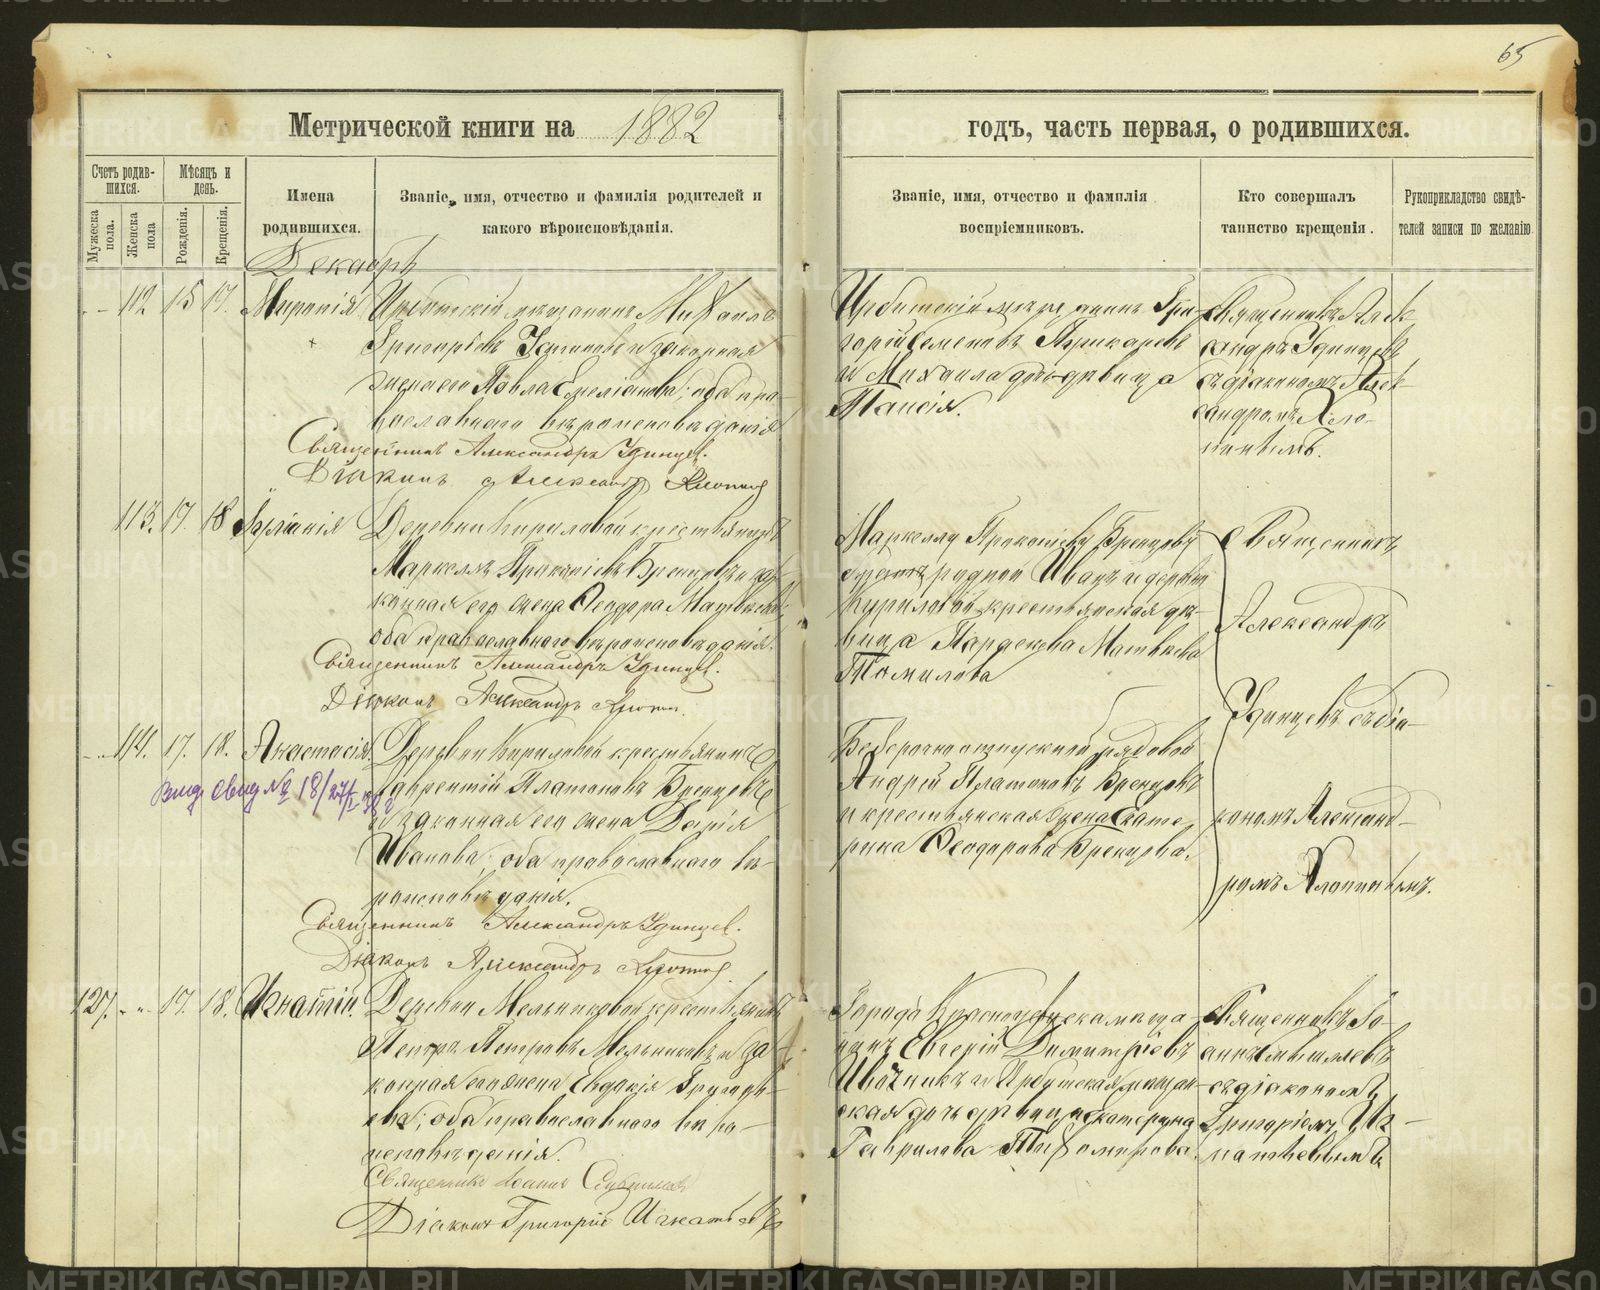 65
Метрической книги на 1882
годъ, часть первая, о родившихся.
Счетъ родив-
шихся.
Мѣсяцъ и
день.
Мужеска
пола.
Женска
пола
Рожденія.
Крещенія.
Имена
родившихся.
Званіе, имя, отчество и фамилія родителей и
какого вѣроисповѣданія.
Званіе, имя, отчество и фамилія
воспріемниковъ.
Кто совершалъ
таинство крещенія.
Рукоприкладство свидѣ-
телей записи по желанію
Декабрь
112 15 17. Миропія
Ирбитскій мѣщанинъ Михаилъ
Григорьевъ и законная
жена его Павла Емеліанова; оба пра-
вославнаго вѣроисповѣданія
Священникъ Александръ Удинцев.
Діаконъ Александръ Хлопинов
Ирбитскій мѣщанинъ Гри-
горій Семеновъ
и Михаила дочь дѣвица
Таисія.
Священникъ Алек-
сандръ Удинцевъ
съ діакономъ Алек-
сандромъ Хло-
113. 17. 18 Іуліанія
Деревни Кириловой крестьянинъ
Маркеллъ Прокопіевъ Бренцовъ и за-
конная его жена Ѳеодора Матвѣева;
оба православнаго вѣроисповѣданія.
Священникъ Александръ Удинцев.
Діаконъ Александръ
Маркеллу Прокопіеву Бренцову
родной Иванъ и деревни
Кириловой крестьянская дѣ-
вица Параскева Матвѣева
Томилова
Священникъ
Александръ
Удинцевъ съ діа-
кономъ Александ-
ромъ
114. 17. 18. Анастасія.
Выд. свид. № 18/27
Деревни Кириловой крестьянинъ
Лаврентій Платоновъ Бренцовъ
и законная его жена Дарія
Иванова; оба православнаго вѣ-
роисповѣданія.
Священникъ Александръ Удинцев.
Діаконъ Александръ
Безсрочноотпускной рядовой
Андрей Платоновъ Бренцовъ
и крестьянская жена Екате-
рина Ѳеодорова Бренцова.
127. 17. 18. Игнатій.
Деревни Мельниковой крестьянинъ
Петръ Петровъ Мельниковъ и за-
конная его жена Евдокія Григорь-
ева; оба православнаго вѣро-
исповѣданія.
Священникъ Іоаннъ
Діаконъ Григорій Игнатьевъ
Города мѣща-
нинъ Евгерій Димитріевъ
и Ирбитская мѣщан-
ская дочь дѣвица Екатерина
Гаврилова Тихомирова.
Священникъ Іо-
аннъ
съ діакономъ
Григоріемъ Иг-
натьевымъ
METRIKI.GASO-URAL.RU